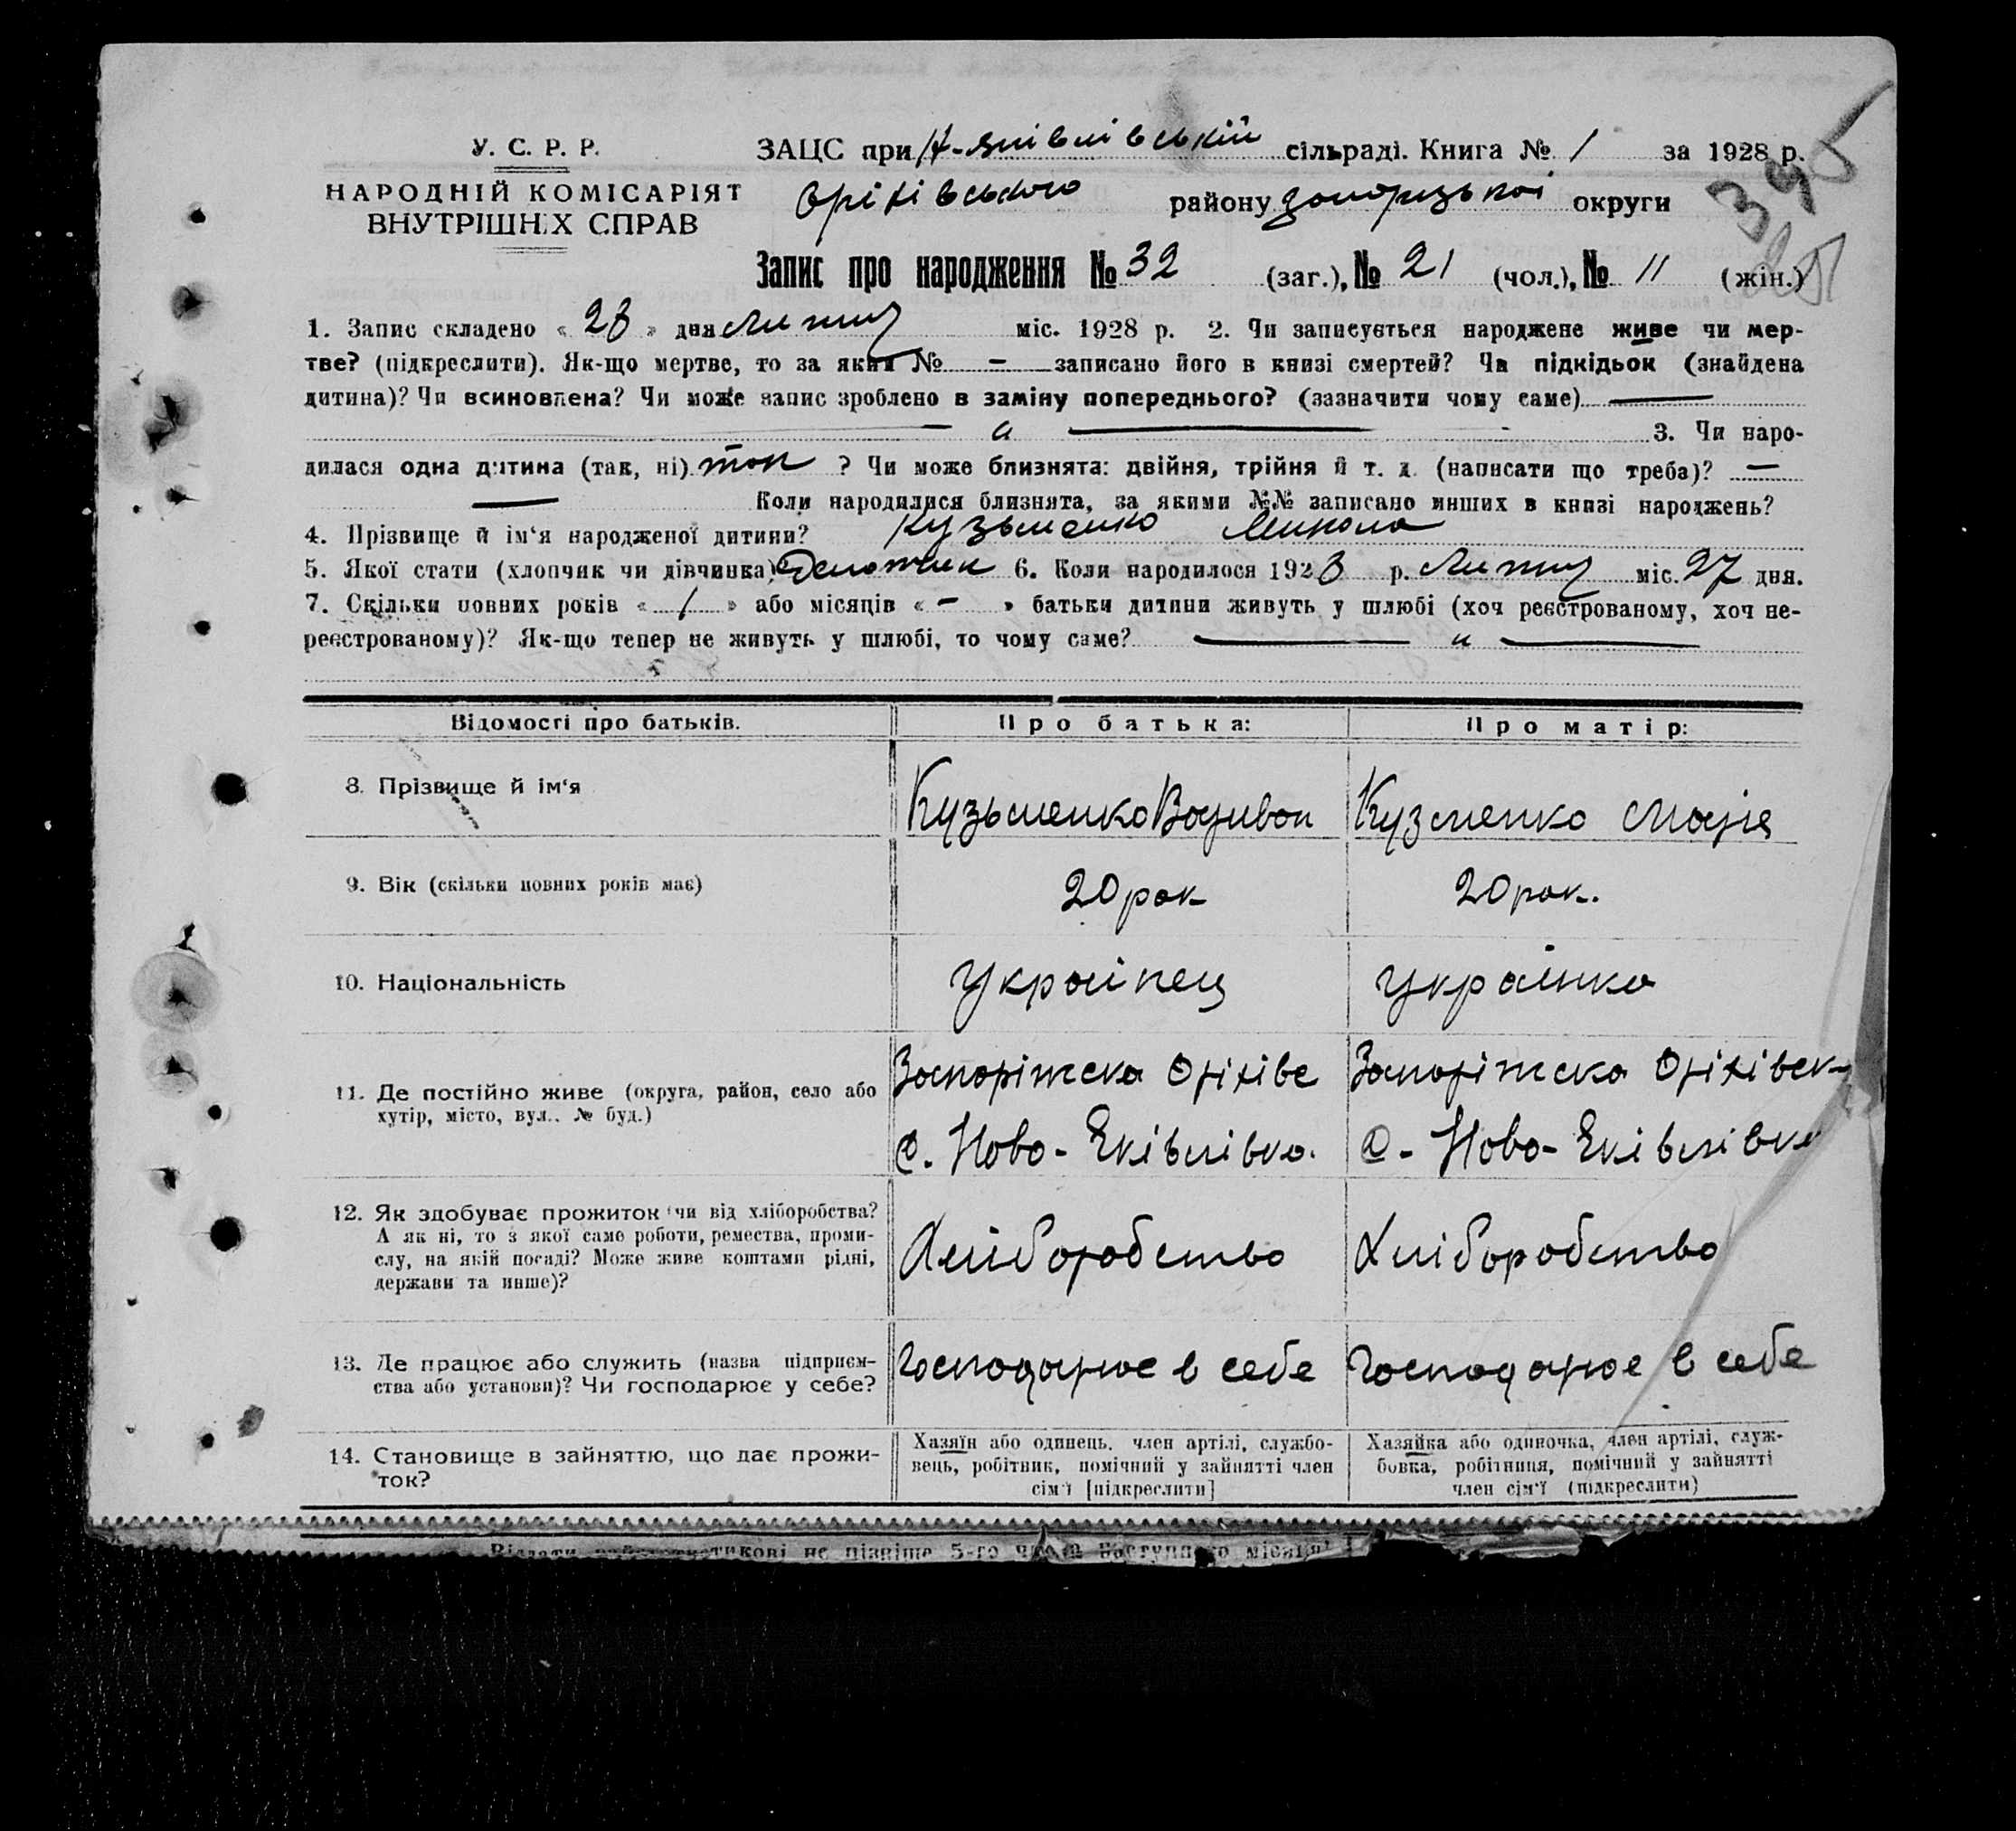 У. С. Р. Р.
НАРОДНІЙ КОМІСАРІЯТ
ВНУТРІШНІХ СПРАВ
ЗАЦС при Н-Яківлівській сільраді. Книга № 1 за 1928 р.
Оріхівського району Запорізької округи
395
Запис про народження № 32 (заг.), № 21 (чол.), № 11 (жін.)
1. Запис складено « 28 » дня Лютий міс. 1928 р. 2. Чи записується народжене живе чи мер-
тве? (підкреслити). Як-що мертве, то за яким № — записано його в книзі смертей? Чи підкідьок (знайдена
дитина)? Чи всиновлена? Чи може запис зроблено в заміну попереднього? (зазначити чому саме) —
— „ — 3. Чи наро-
дилася одна дитина (так, ні) так ? Чи може близнята: двійня, трійня й т. д. (написати що треба)? —
— Коли народилися близнята, за якими №№ записано инших в книзі народжень?
4. Прізвище й ім‘я народженої дитини? Кузьменко Микола
5. Якої стати (хлопчик чи дівчинка) 6. Коли народилося 1928 р. Лютий міс. 27 дня.
7. Скільки повних років « 1 » або місяців « - » батьки дитини живуть у шлюбі (хоч реєстрованому, хоч не-
реєстрованому)? Як-що тепер не живуть у шлюбі, то чому саме? — „ —
Відомості про батьків. Про батька: Про матір:
8. Прізвище й ім‘я Кузьменко Кузменко Марія
9. Вік (скільки повних років має) 20 рок 20 рок.
10. Національність Украінец Украінка
11. Де постійно живе (округа, район, село або
хутір, місто, вул.. № буд.)
Запоріжска Оріхівс
с. Ново-Яківлівка.
Запоріжска Оріхівск
с. Ново-Яківлівка
12. Як здобуває прожиток чи від хліборобства?
А як ні, то з якої саме роботи, ремества, проми-
слу, на якій посаді? Може живе коштами рідні,
держави та инше)?
Хліборобство Хліборобство
13. Де працює або служить (назва підприєм-
ства або установи)? Чи господарює у себе?
Господарює в себе Господарює в себе
14. Становище в зайняттю, що дає прожи-
ток?
Хазяїн або одинець. член артілі, службо-
вець, робітник, помічний у зайнятті член
сім‘ї [підкреслити]
Хазяйка або одиночка, член артілі, служ-
бовка, робітниця, помічний у зайнятті
член сім‘ї (підкреслити)
не пізніше 5-го числа наступного місяця!